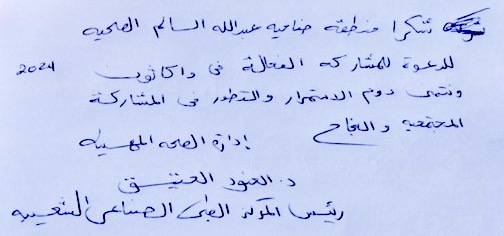 تشكرا منطقة ضاحية عبدالله السالم الصحية
للدعوة للمشاركة الفعالة في واكاثون 2024
ونتمنى دوم الاستمرار والتطور في المشاركة
المجتمعية والنجاح
إدارة الصحة المهنية
د. العنود العتيق
رئيس المركز الطبي الصناعي الشعيبة